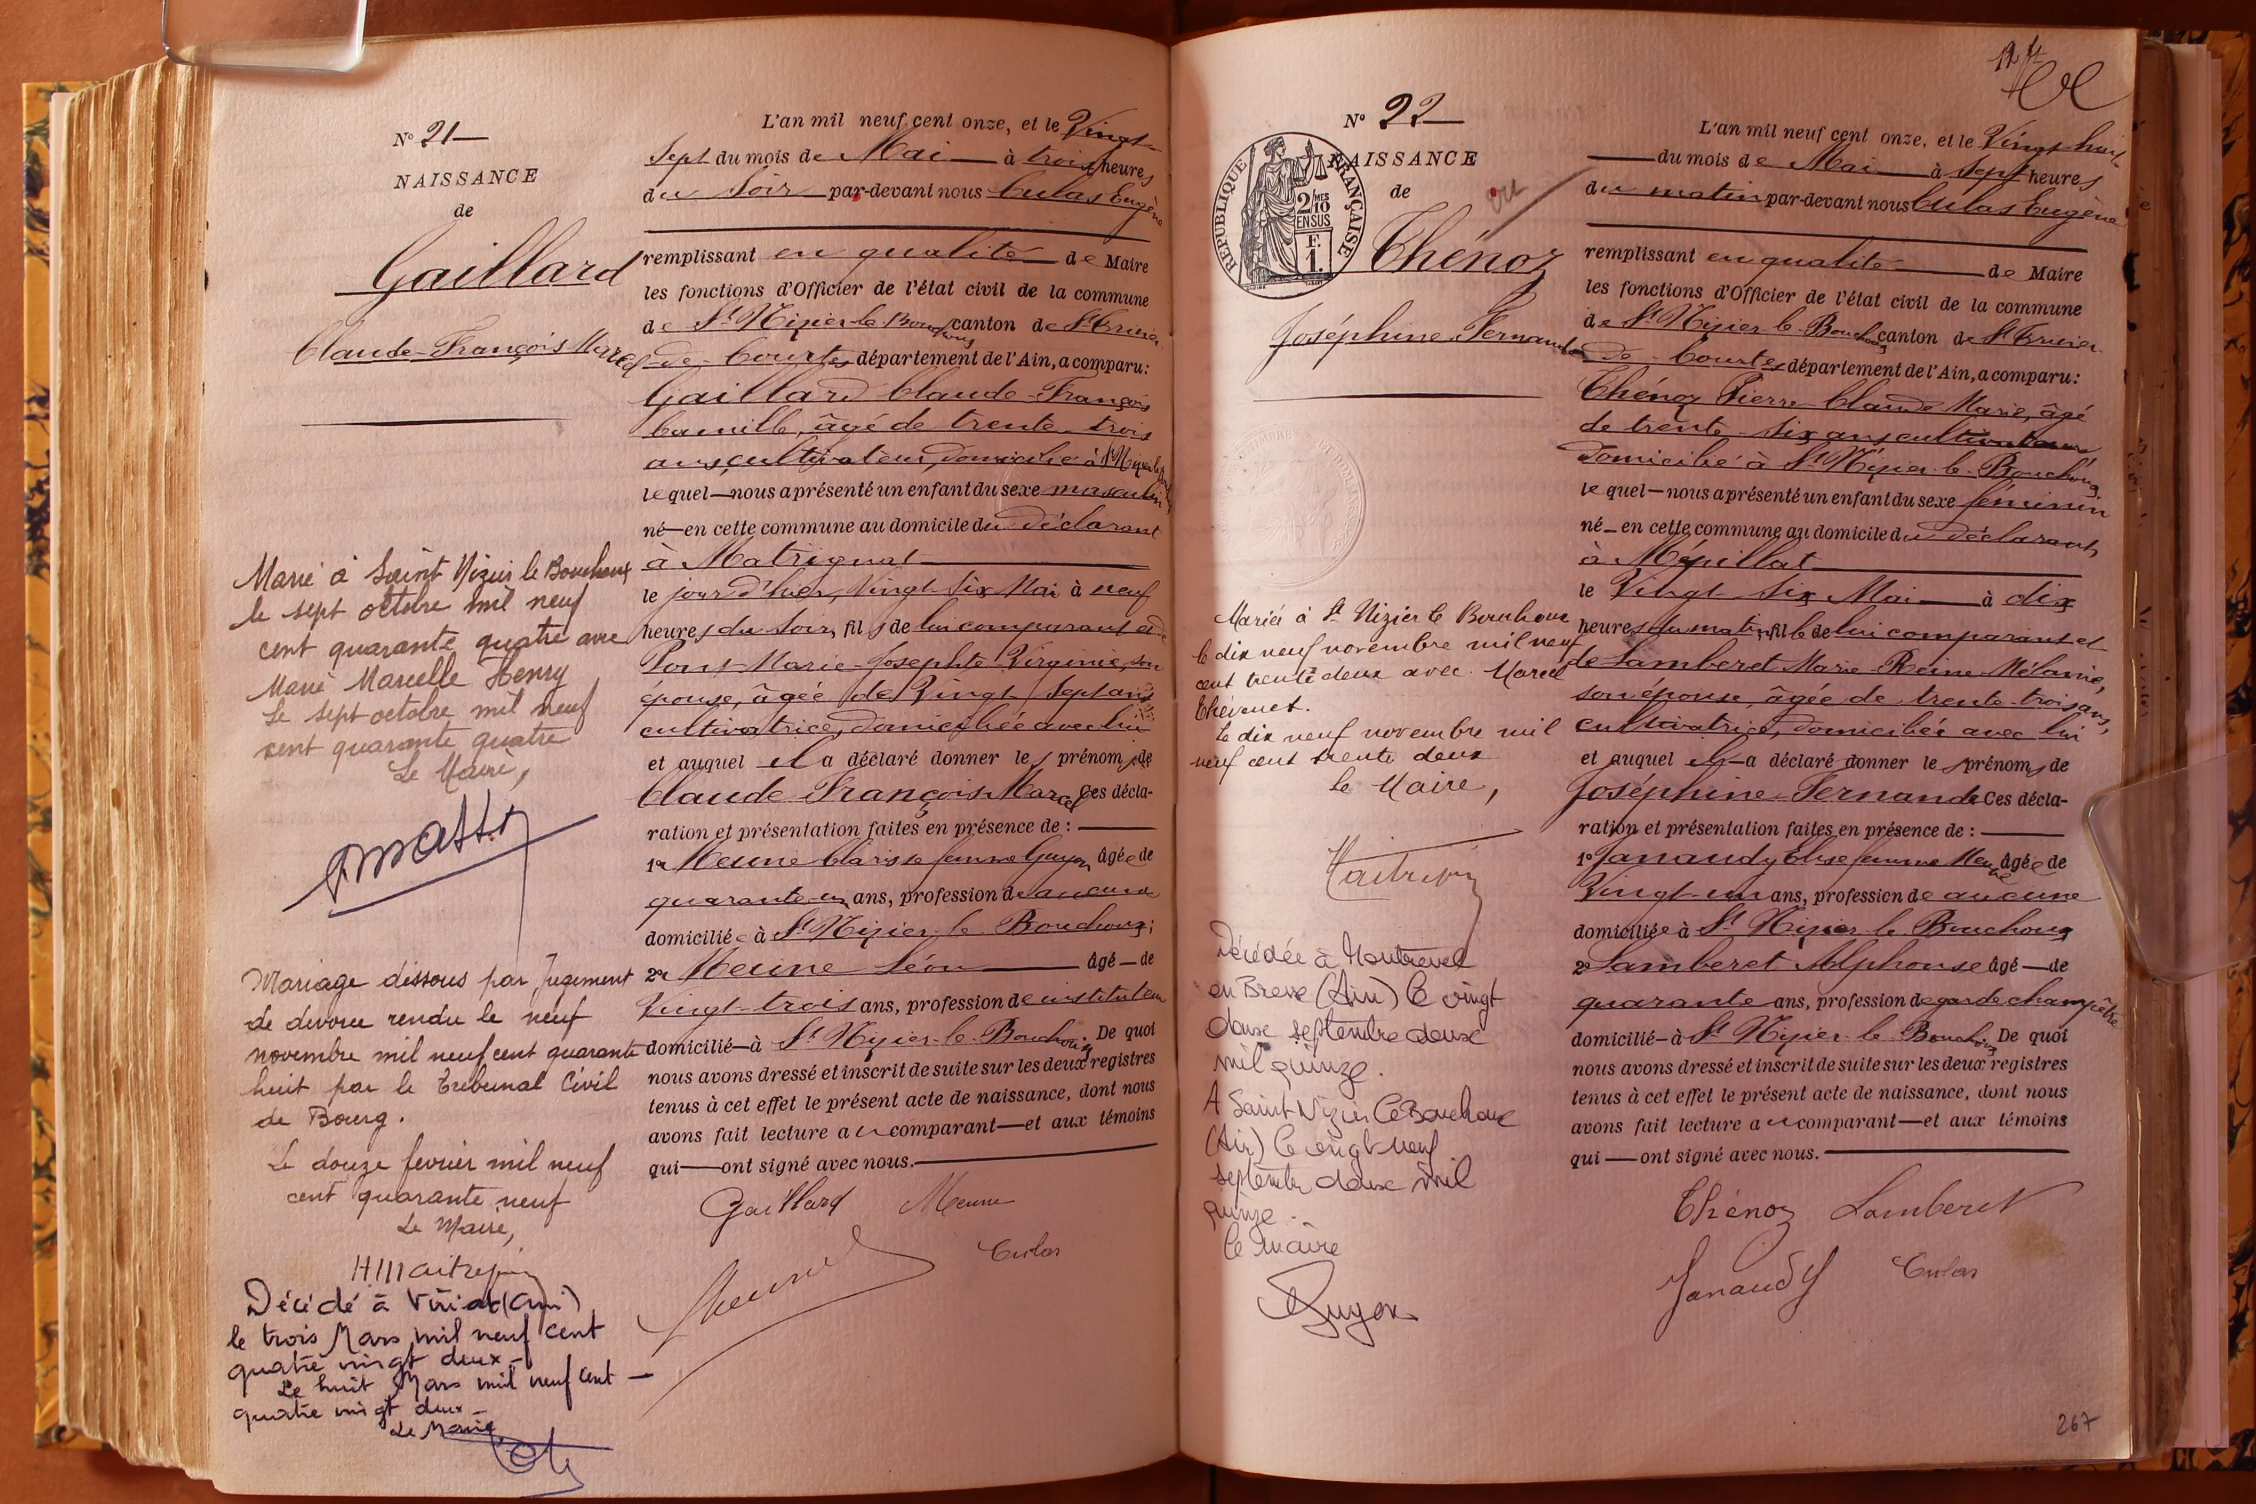 N° 21
NAISSANCE
de
Gaillard
Claude-François Marcel
Marié à Saint Nizier le Bouchoux
le sept octobre mil neuf
cent quarante quatre avec
Marie Marcelle Henry
Le sept octobre mil neuf
cent quarante quatre
Le Maire,
Mariage dissous par Jugement
de divorce rendu le neuf
novembre mil neuf cent quarante
huit par le Tribunal Civil
de Bourg.
Le douze fevrier mil neuf
cent quarante neuf
Le Maire,
HMaitrepierre
Décédé à Viriat (Ain)
le trois Mars mil neuf cent
quatre vingt deux -
Le huit Mars mil neuf cent
quatre vingt deux -
Le Maire
L'an mil neuf cent onze, et le Vingt-
sept du mois de Mai à trois heures
du soir par-devant nous Culas Eugène
remplissant en qualité de Maire
les fonctions d'Officier de l'état civil de la commune
de St Nizier-le-Bouchoux canton de St Trivier
de-Courtes département de l'Ain, a comparu:
Gaillard Claude-François
Camille, âgé de trente-trois
ans, cultivateur, domicilié à St Nizier le Bouchoux
lequel nous a présenté un enfant du sexe masculin
né en cette commune au domicile du déclarant
à Matrignat
le jour d'hier, Vingt-six Mai à neuf
heures du soir, fils de lui comparant et de
Pont Marie-Josephte Virginie, son
épouse, âgée de Vingt-sept ans
cultivatrice, domiciliée avec lui
et auquel il a déclaré donner les prénoms de
Claude François Marcel Ces décla-
ration et présentation faites en présence de :
1° Meune Clarisse femme Guyon âgée de
quarante-un ans, profession de aucune
domiciliée à St Nizier le Bouchoux;
2° Meune Léon âgé de
Vingt-trois ans, profession de instituteur
domicilié à St Nizier-le-Bouchoux. De quoi
nous avons dressé et inscrit de suite sur les deux registres
tenus à cet effet le présent acte de naissance, dont nous
avons fait lecture au comparant et aux témoins
qui ont signé avec nous.
Gaillard Meune
Meune Culas
124
N° 22
NAISSANCE
de
RÉPUBLIQUE FRANÇAISE
2/10 MES
EN SUS
F.
1.
Thénoz
Joséphine Fernande
Mariée à St Nizier le Bouchoux
le dix neuf novembre mil neuf
cent trente deux avec Marcel
Thévenet.
Le dix neuf novembre mil
neuf cent trente deux
Le Maire,
Maitrepierre
Décédée à Montrevel
en Bresse (Ain) le vingt
deux septembre deux
mil quinze.
A Saint Nizier Le Bouchoux
(Ain) le vingt neuf
septembre deux mil
quinze.
Le Maire
Guyon
L'an mil neuf cent onze, et le Vingt huit
du mois de Mai à sept heures
du matin par-devant nous Culas Eugène
remplissant en qualité de Maire
les fonctions d'Officier de l'état civil de la commune
de St Nizier le Bouchoux canton de St Trivier
de-Courtes département de l'Ain, a comparu:
Thénoz Pierre Claude Marie, âgé
de trente-six ans cultivateur
domicilié à St Nizier le Bouchoux
lequel nous a présenté un enfant du sexe féminin
né en cette commune au domicile du déclarant,
à Mépillat
le Vingt six Mai à dix
heures du matin fille de lui comparant et
de Lamberet Marie Reine Mélanie,
son épouse, âgée de trente-trois ans,
cultivatrice, domiciliée avec lui
et auquel il a déclaré donner les prénoms de
Joséphine-Fernande Ces décla-
ration et présentation faites en présence de :
1° Janaudy Elise femme Meune âgée de
Vingt-un ans, profession de aucune
domiciliée à St Nizier le Bouchoux
2° Lamberet Alphonse âgé de
quarante ans, profession de garde champêtre
domicilié à St Nizier le Bouchoux De quoi
nous avons dressé et inscrit de suite sur les deux registres
tenus à cet effet le présent acte de naissance, dont nous
avons fait lecture au comparant et aux témoins
qui ont signé avec nous.
Thénoz Lamberet
Janaudy Culas
267